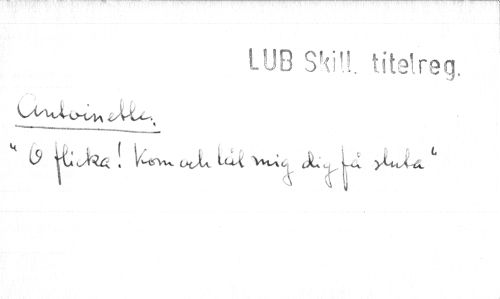 LUB Skill. titelreg.
Antoinette.
"O flicka! Kom och låt mig dig få sluta"